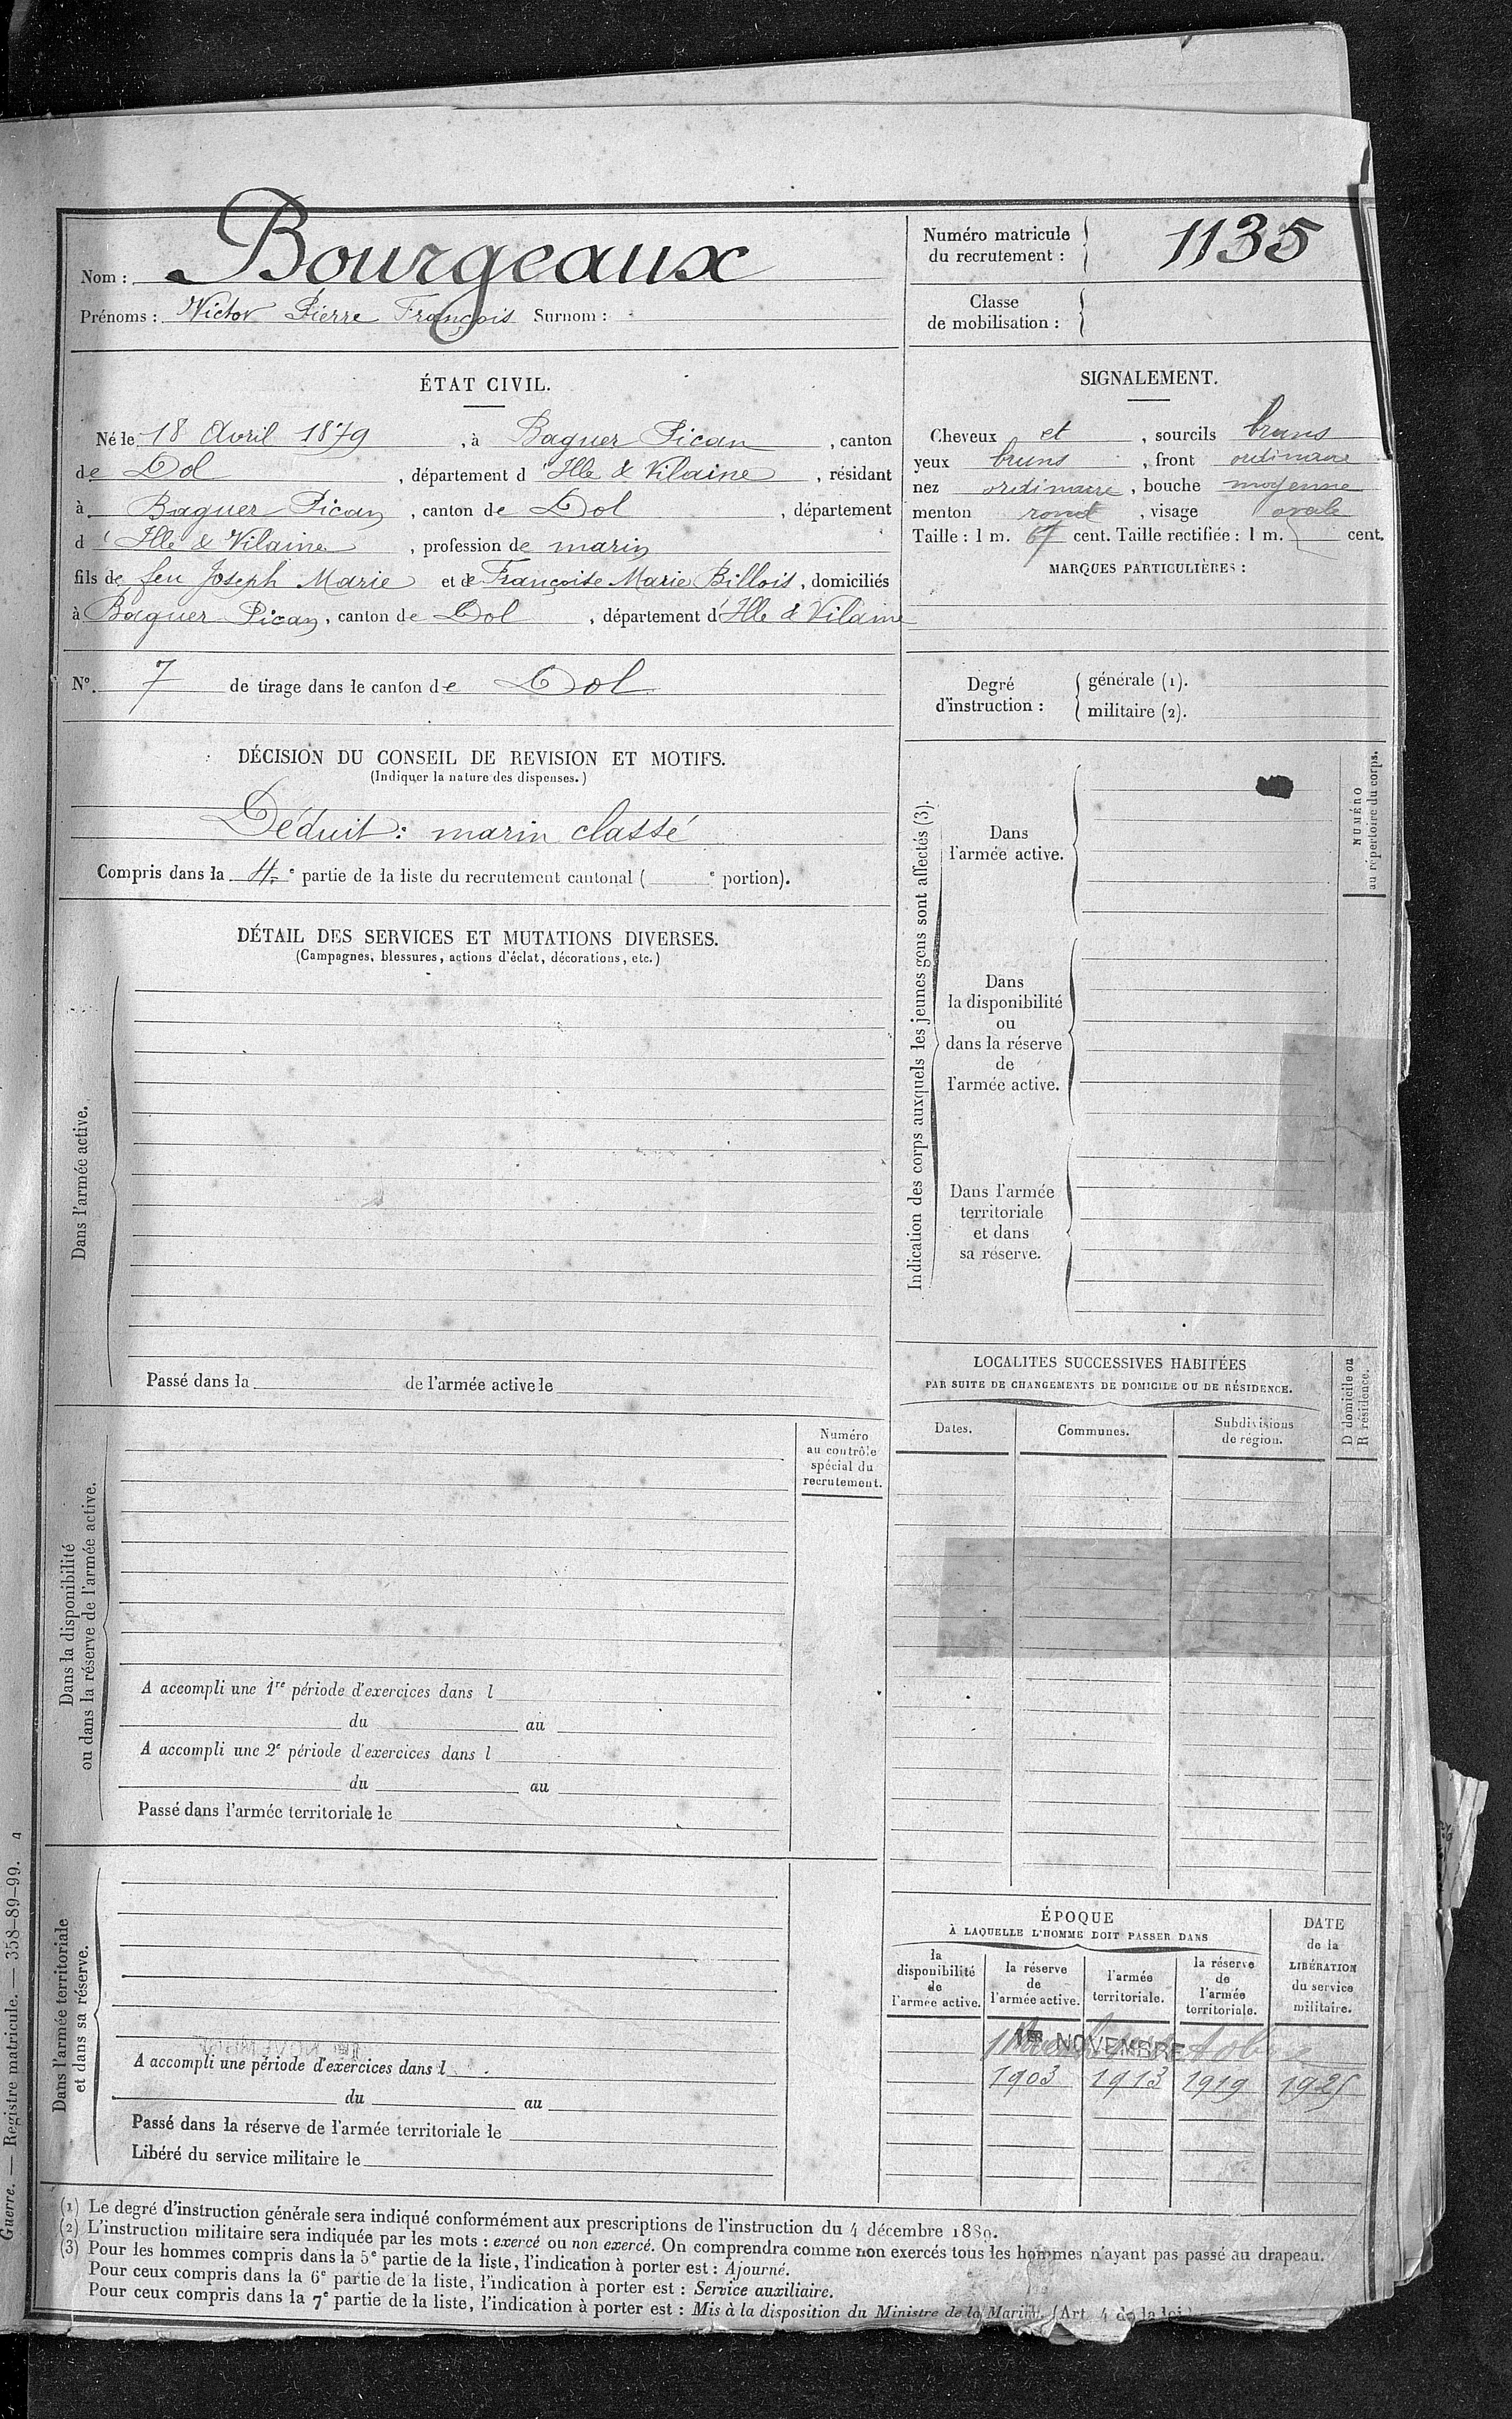 Nom : Bourgeaux
Prénoms : Victor Pierre François Surnom :
Numéro matricule du recrutement : 1135
Classe de mobilisation :
ÉTAT CIVIL.
Né le 18 Avril 1879, à Baguer Pican, canton
de Dol, département d'Ille & Vilaine, résidant
à Baguer Pican, canton de Dol, département
d'Ille & Vilaine, profession de marin
fils de feu Joseph Marie et de Françoise Marie Billois, domiciliés
à Baguer Pican, canton de Dol, département d'Ille & Vilaine
N°. 7 de tirage dans le canton de Dol
SIGNALEMENT.
Cheveux et, sourcils bruns
yeux bruns, front ordinaire
nez ordinaire, bouche moyenne
menton rond, visage ovale
Taille : 1 m. 67 cent. Taille rectifiée : 1 m. cent.
MARQUES PARTICULIÈRES :
Degré d'instruction :
générale (1).
militaire (2).
DÉCISION DU CONSEIL DE REVISION ET MOTIFS.
(Indiquer la nature des dispenses.)
Déduit : marin classé
Compris dans la 4e partie de la liste du recrutement cantonal ( e portion).
DÉTAIL DES SERVICES ET MUTATIONS DIVERSES.
(Campagnes, blessures, actions d'éclat, décorations, etc.)
Dans l'armée active.
Passé dans la de l'armée active le
Dans la disponibilité
ou dans la réserve de l'armée active.
Numéro
au contrôle
spécial du
recrutement.
A accompli une 1re période d'exercices dans l
du au
A accompli une 2e période d'exercices dans l
du au
Passé dans l'armée territoriale le
Dans l'armée territoriale
et dans sa réserve.
A accompli une période d'exercices dans l
du au
Passé dans la réserve de l'armée territoriale le
Libéré du service militaire le
Indication des corps auxquels les jeunes gens sont affectés (3).
Dans
l'armée active.
Dans
la disponibilité
ou
dans la réserve
de
l'armée active.
Dans l'armée
territoriale
et dans
sa réserve.
NUMÉRO
au répertoire du corps.
LOCALITÉS SUCCESSIVES HABITÉES
PAR SUITE DE CHANGEMENTS DE DOMICILE OU DE RÉSIDENCE.
Dates.
Communes.
Subdivisions
de région.
D domicile ou
R résidence.
ÉPOQUE
À LAQUELLE L'HOMME DOIT PASSER DANS
la
disponibilité
de
l'armée active.
la réserve
de
l'armée active.
l'armée
territoriale.
la réserve
de
l'armée
territoriale.
DATE
de la
LIBÉRATION
du service
militaire.
1ER NOVEMBRE
1903 1913 1919 1925
(1) Le degré d'instruction générale sera indiqué conformément aux prescriptions de l'instruction du 4 décembre 1889.
(2) L'instruction militaire sera indiquée par les mots : exercé ou non exercé. On comprendra comme non exercés tous les hommes n'ayant pas passé au drapeau.
(3) Pour les hommes compris dans la 5e partie de la liste, l'indication à porter est : Ajourné.
Pour ceux compris dans la 6e partie de la liste, l'indication à porter est : Service auxiliaire.
Pour ceux compris dans la 7e partie de la liste, l'indication à porter est : Mis à la disposition du Ministre de la Marine. (Art. 4 de la loi)
Guerre. — Registre matricule. — 358-89-99. 4